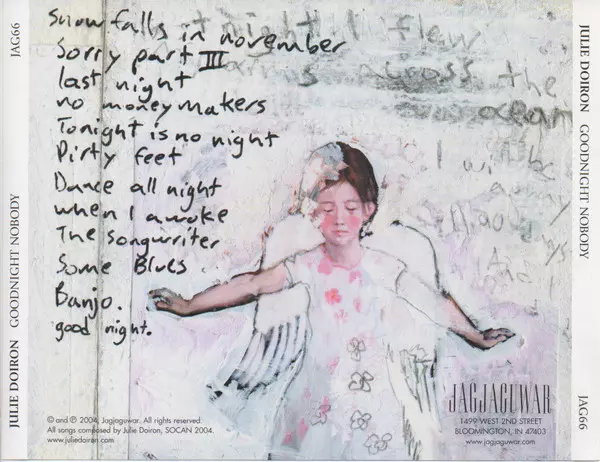 JULIE DOIRON GOODNIGHT NOBODY JAG66
Snow falls in november
Sorry part III
last night
no money makers
Tonight is no night
Dirty feet
Dance all night
when I awoke
The songwriter
Some Blues
Banjo.
good night.
night I flew
arms across the
ocean
I will be
away
days
And I
© and ℗ 2004, Jagjaguwar. All rights reserved.
All songs composed by Julie Doiron, SOCAN 2004.
www.juliedoiron.com
JAGJAGUWAR
1499 WEST 2ND STREET
BLOOMINGTON, IN 47403
www.jagjaguwar.com
JULIE DOIRON GOODNIGHT NOBODY JAG66